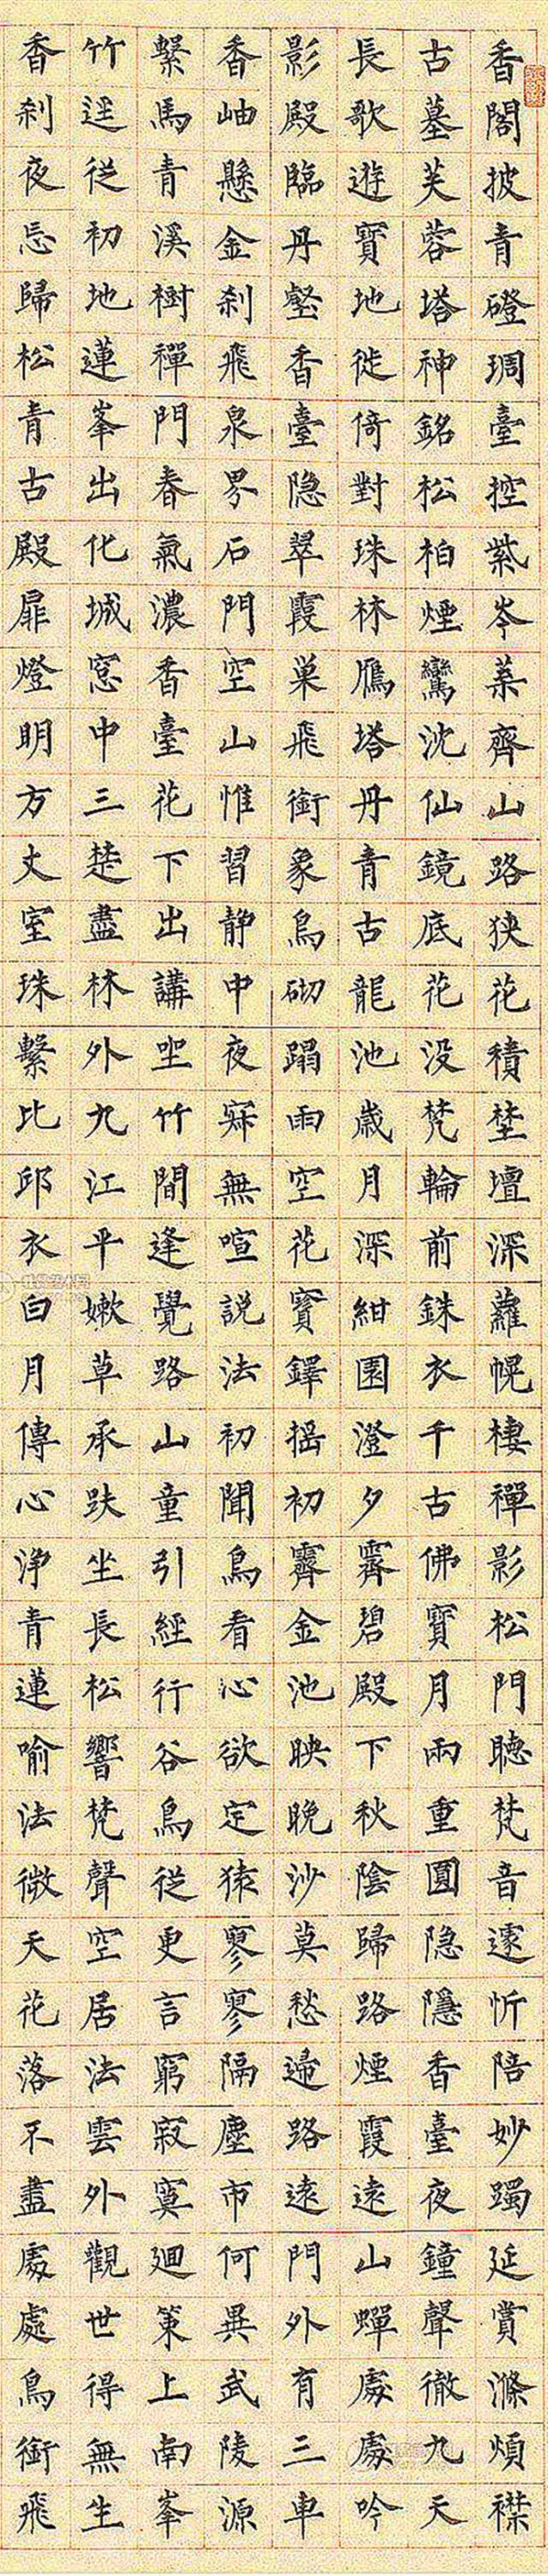 香閣披青磴琱臺控紫岑葉齊山路狹花積埜壇深蘿幌棲禪影松門聽梵音遽忻陪妙躅延賞滌煩襟
古墓芙蓉塔神銘松柏煙鸞沈仙鏡底花没梵輪前銖衣千古佛寶月兩重圓隐隱香臺夜鐘聲徹九天
長歌遊寶地徙倚對珠林鴈塔丹青古龍池歲月深紺園澄夕霽碧殿下秋陰歸路煙霞遠山蟬處處吟
影殿臨丹壑香臺隐翠霞巢飛銜象鳥砌蹋雨空花寶鐸摇初霽金池映晚沙莫愁歸路遠門外有三車
香岫懸金刹飛泉界石門空山惟習静中夜寂無喧説法初聞鳥看心欲定猿寥寥隔塵市何異武陵源
繫馬青溪樹禪門春氣濃香臺花下出講坐竹間逢覺路山童引經行谷鳥從更言窮寂寞廻策上南峯
竹逕從初地蓮峯出化城窓中三楚盡林外九江平嫩草承趺坐長松響梵聲空居法雲外觀世得無生
香刹夜忘歸松青古殿扉燈明方丈室珠繫比邱衣白月傳心浄青蓮喻法微天花落不盡處處鳥銜飛